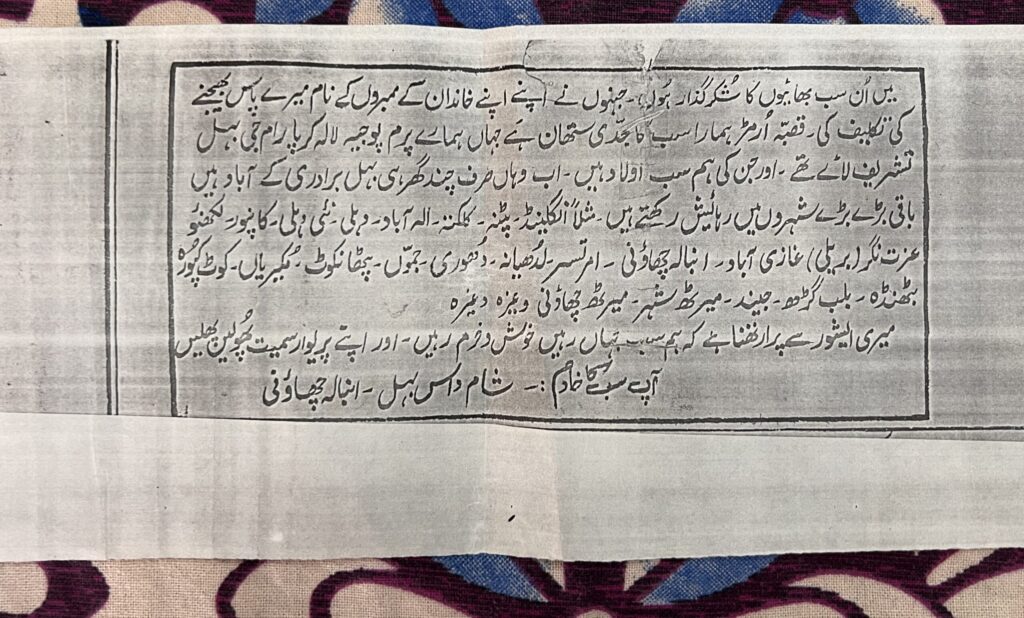 میں اُن سب بھائیوں کا شکرگذار ہوں۔ جنہوں نے اپنے اپنے خاندان کے ممبروں کے نام میرے پاس بھیجنے
کی تکلیف کی۔ قصبّہ اُرمڑ ہمارا سب کا جدّی ستھان ہَے جہاں ہمارے پرم پوجیہ لالہ کرپا رام جی بہل
تشریف لائے تھے۔ اور جن کی ہم سب اولاد ہیں۔ اب وہاں صرف چند گھر ہی بہل برادری کے آباد ہیں
باقی بڑے بڑے شہروں میں رہائیش رکھتے ہیں۔ مثلاً انگلینڈ۔ پٹنہ۔ کلکتہ۔ الہ آباد۔ دہلی۔ نئی دہلی۔ کانپور۔ لکھنؤ
عزت نگر (بریلی) غازی آباد۔ انبالہ چھاؤنی۔ امرتسر۔ لدُھیانہ۔ دُھوری۔ جموّں۔ پٹھانکوٹ۔ مُکیریاں۔ کوٹ کپُورہ
بٹھنڈہ۔ بلب گڑھ۔ جیند۔ میرٹھ شہر۔ میرٹھ چھاؤنی وغیزہ وغیزہ
میری ایشور سے پرارتھنا ہے کہ ہم سب جہاں رہیں خوش و خرم رہیں۔ اور اپنے پریوار سمیت پھُولیں پھلیں
آپ سب کا خادم :۔ شام داس بہل۔ انبالہ چھاؤنی